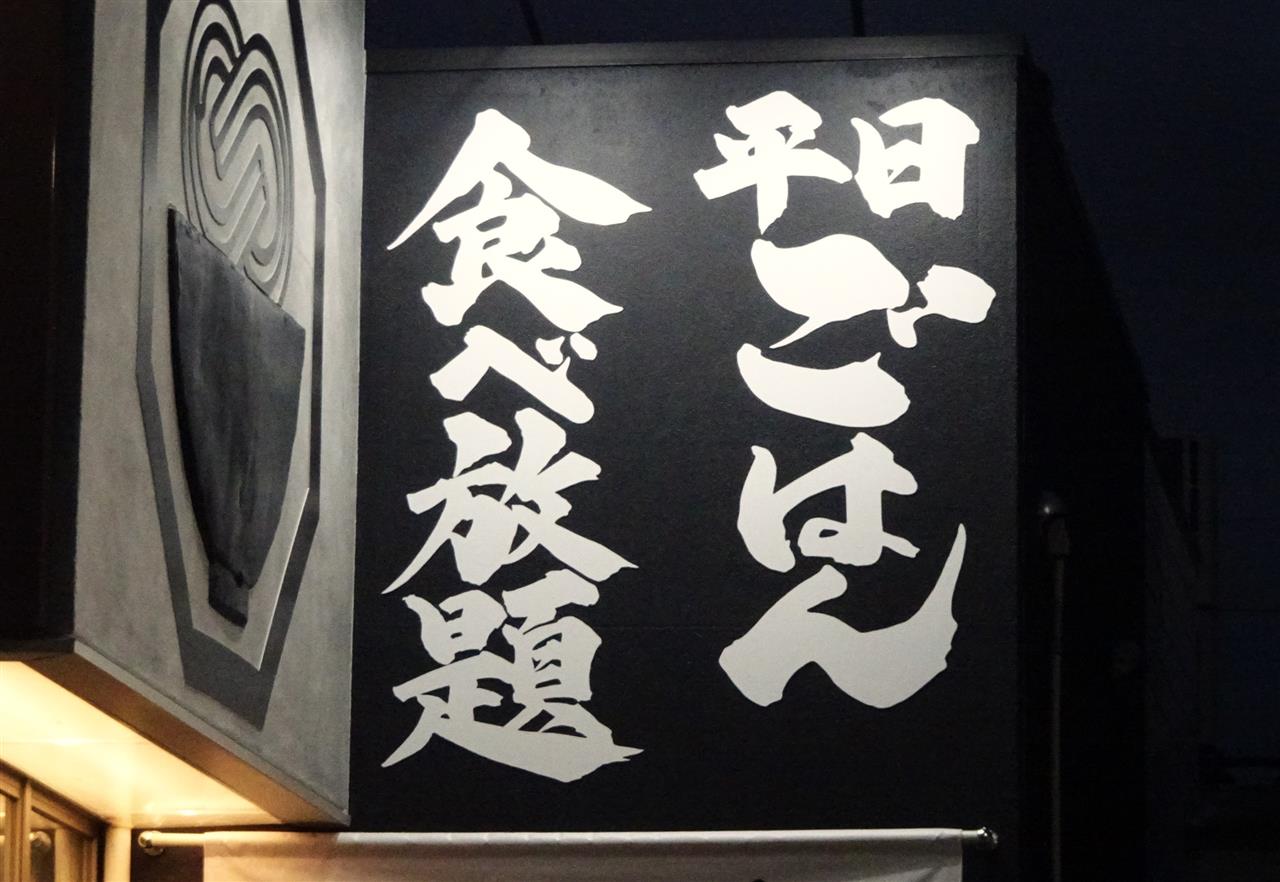 平日ごはん
食べ放題